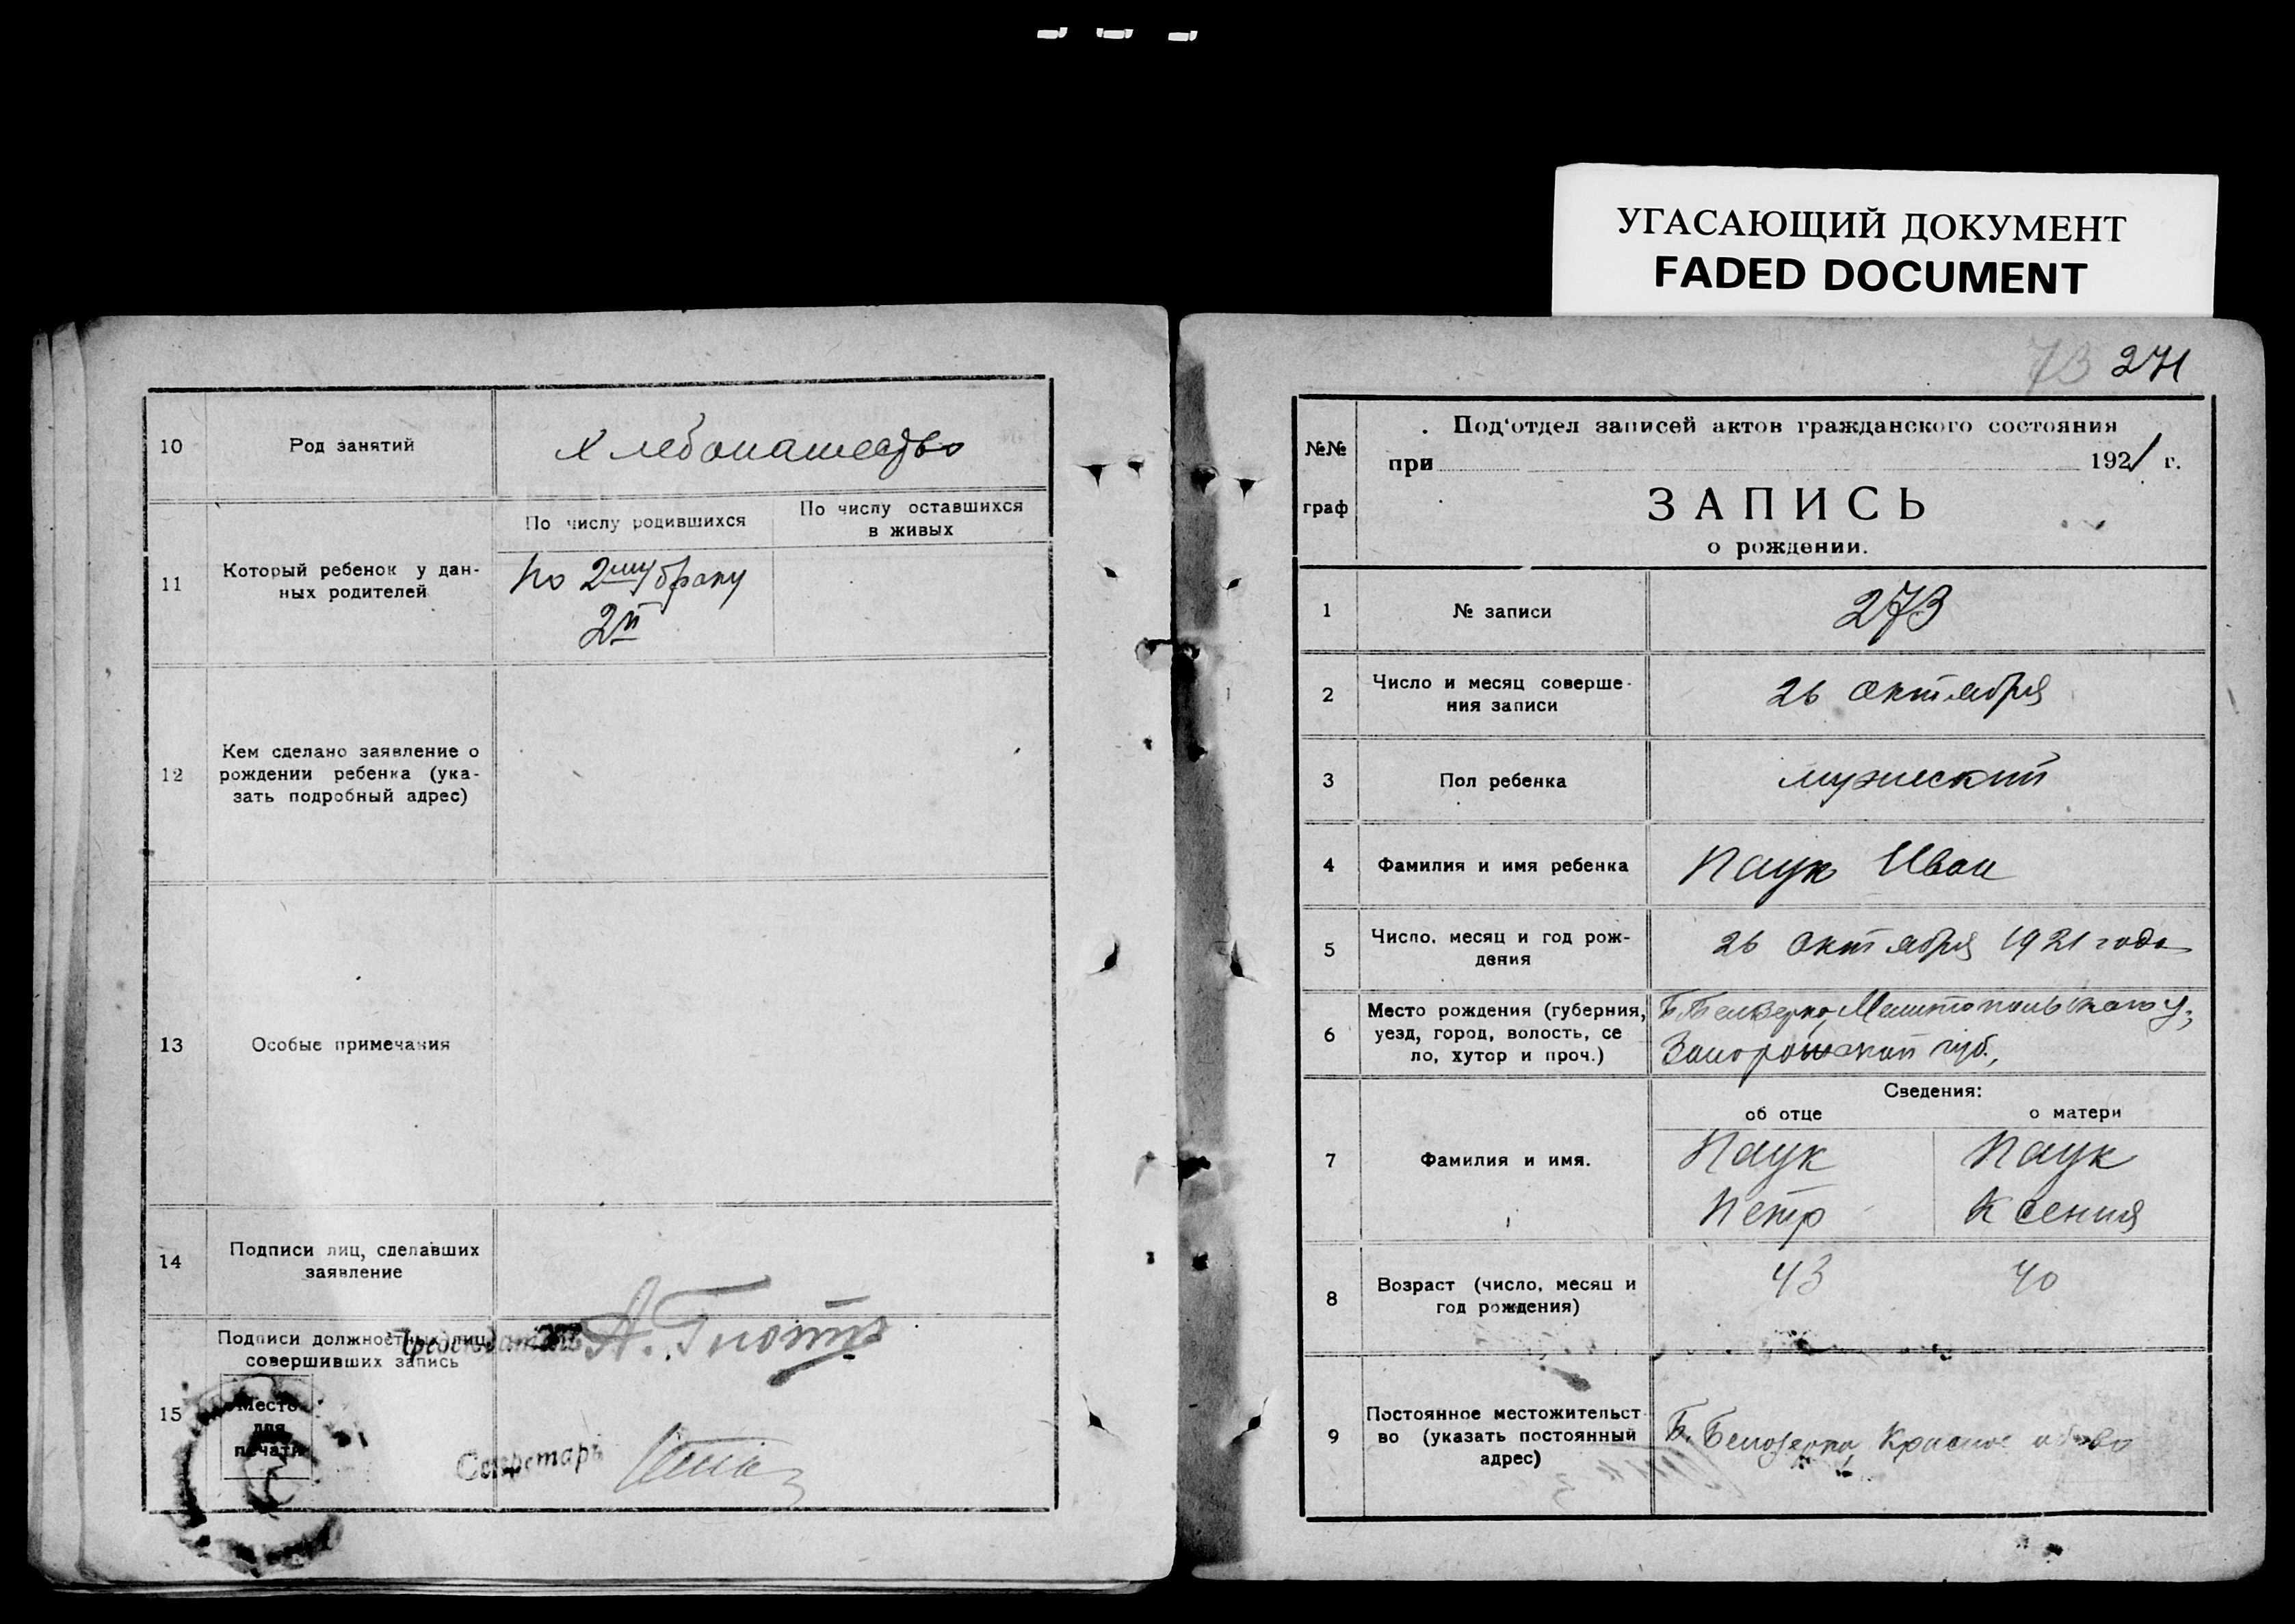 УГАСАЮЩИЙ ДОКУМЕНТ
FADED DOCUMENT
10
Род занятий
Хлебопашество
11
Который ребенок у дан-
ных родителей
По числу родившихся
По числу оставшихся
в живых
По 2му браку
2й
12
Кем сделано заявление о
рождении ребенка (ука-
зать подробный адрес)
13
Особые примечания
14
Подписи лиц, сделавших
заявление
15
Подписи должностных лиц,
совершивших запись
Председатель
Место
для
печати
Секретарь
73 271
№№
граф
Под'отдел записей актов гражданского состояния
при 1921 г.
ЗАПИСЬ
о рождении.
1
№ записи
273
2
Число и месяц соверше-
ния записи
26 октября
3
Пол ребенка
мужеский
4
Фамилия и имя ребенка
Паук Иван
5
Число, месяц и год рож-
дения
26 октября 1921 года
6
Место рождения (губерния,
уезд, город, волость, се
ло, хутор и проч.)
Б. Белозерка, Мелитопольского у.,
Запорожской губ.,
Сведения:
об отце
о матери
7
Фамилия и имя.
Паук
Петр
Паук
Ксения
8
Возраст (число, месяц и
год рождения)
43
40
9
Постоянное местожительст-
во (указать постоянный
адрес)
Б. Белозерка,